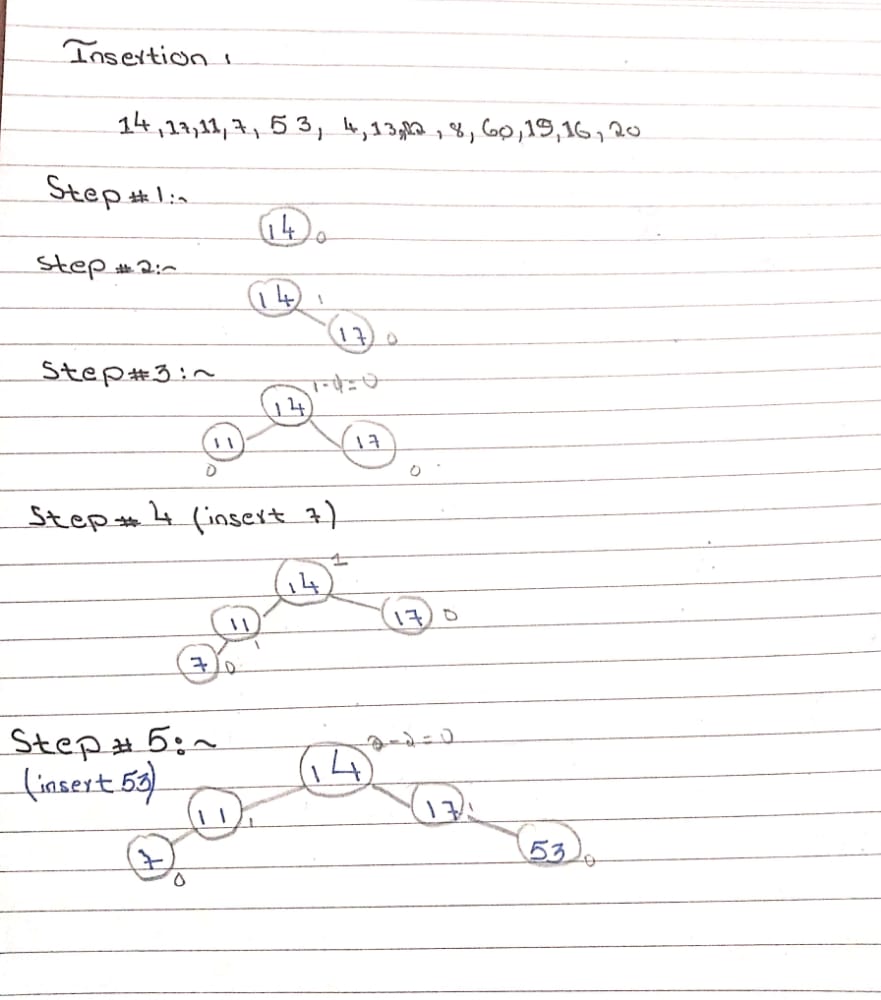 Insertion :
14,17,11,7, 53, 4,13,12, 8, 60,19,16, 20
Step # 1:~
14 0
Step # 2:~
14 1
17 0
Step#3:~
1-1=0
14
11 17
0 0
Step # 4 (insert 7)
1
14
11 17 0
1
7 0
Step # 5:~ 2-2=0
(insert 53) 14
11 1 17 1
7 53 0
0